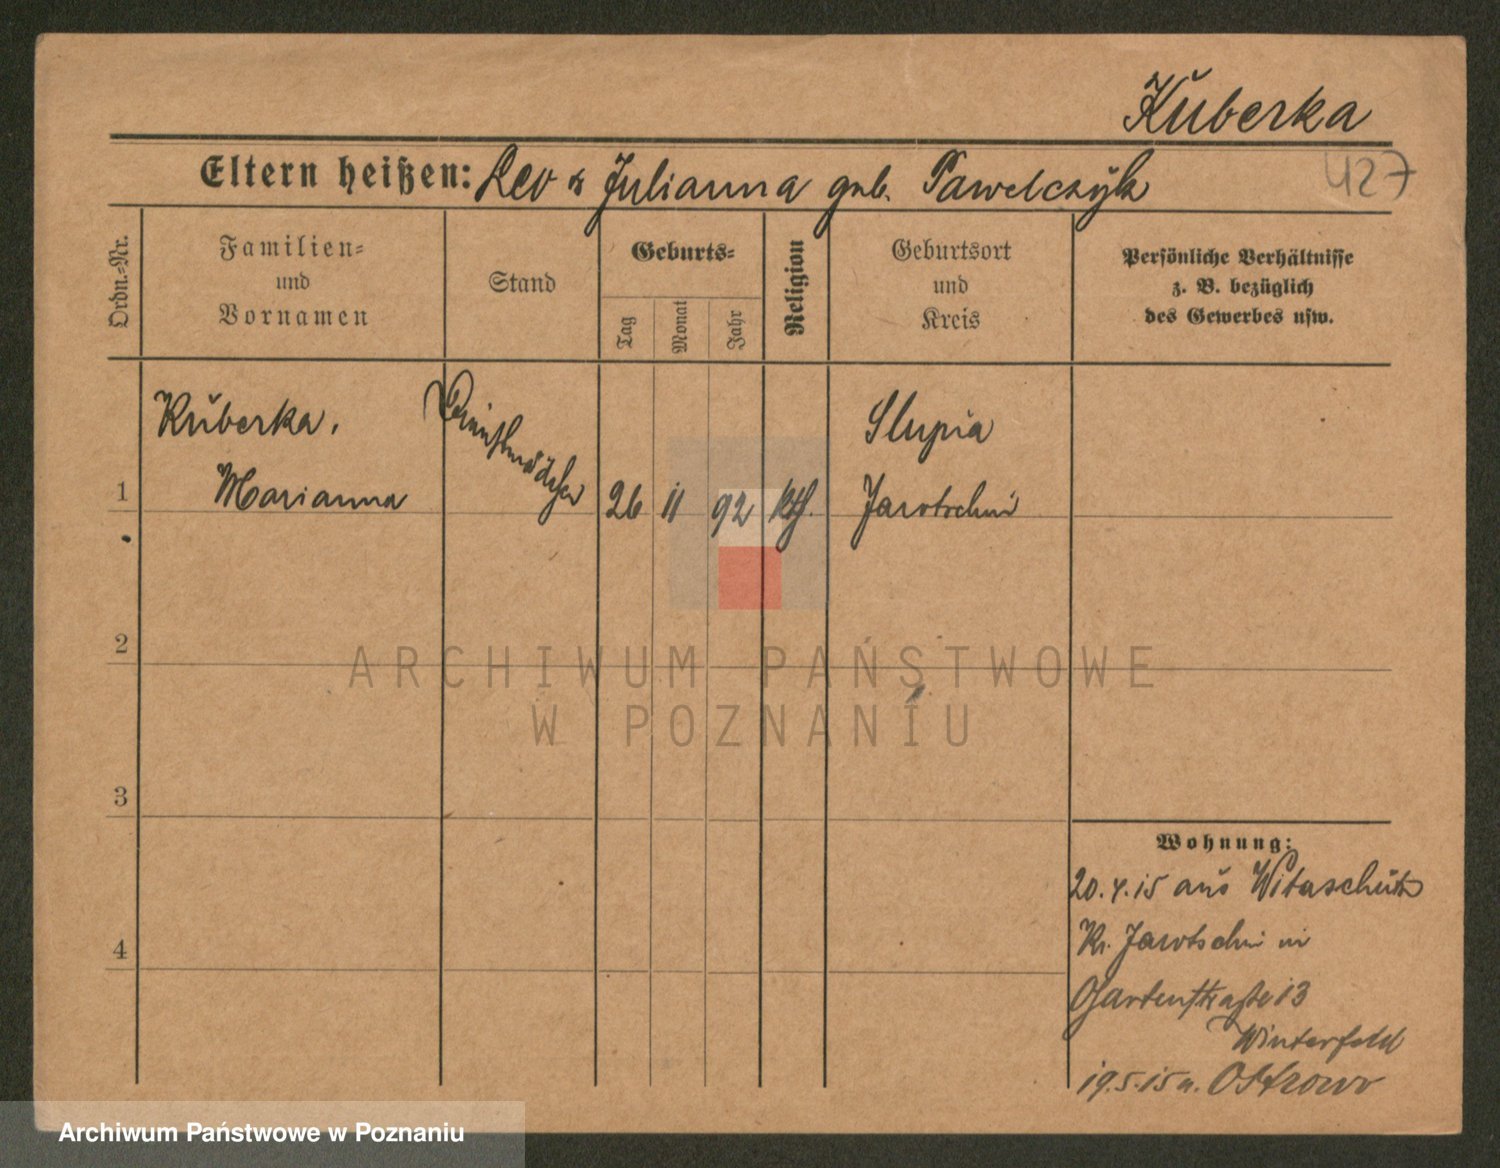 Kuberka
427
Eltern heißen: Leo & Julianna geb. Pawelczyk
Ordn.=Nr.
Familien=
und
Vornamen
Stand
Geburts=
Tag
Monat
Jahr
Religion
Geburtsort
und
Kreis
Persönliche Verhältnisse
z. B. bezüglich
des Gewerbes usw.
1
Kuberka,
Marianna
Dienstmädchen
26
11
92
kth.
Slupia
Jarotschin
2
3
4
Wohnung:
20.4.15 aus Witaschütz
Kr. Jarotschin in
Gartenstraße 13
Winterfeld
19.5.15 n. Ostrowo
ARCHIWUM PAŃSTWOWE
W POZNANIU
Archiwum Państwowe w Poznaniu